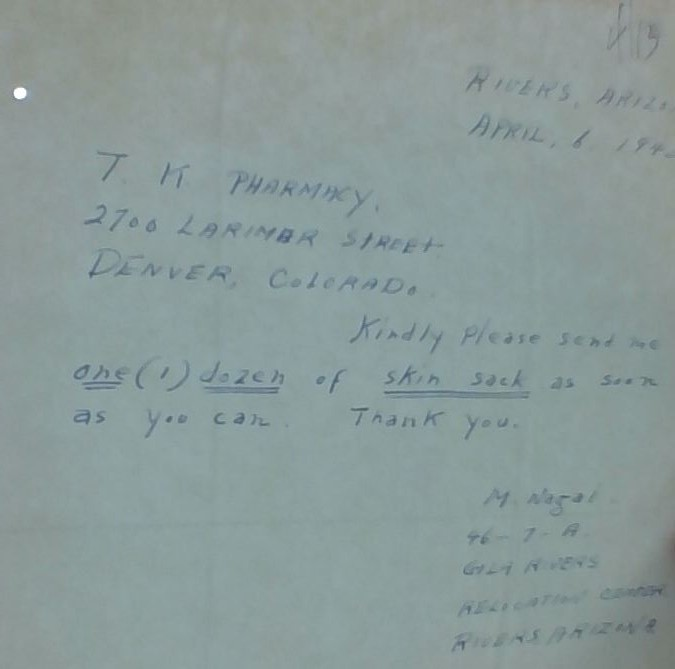 4/13
RIVERS, ARIZO
APRIL, 6. 194
T. K. PHARMACY.
2700 LARIMAR STREET
DENVER, COLORADO.
Kindly Please send me
one (1) dozen of skin sack as soon
as you can. Thank you.
M. Nagai
46-7-A.
GILA RIVERS
RELOCATION CENTER
RIVERS ARIZONA